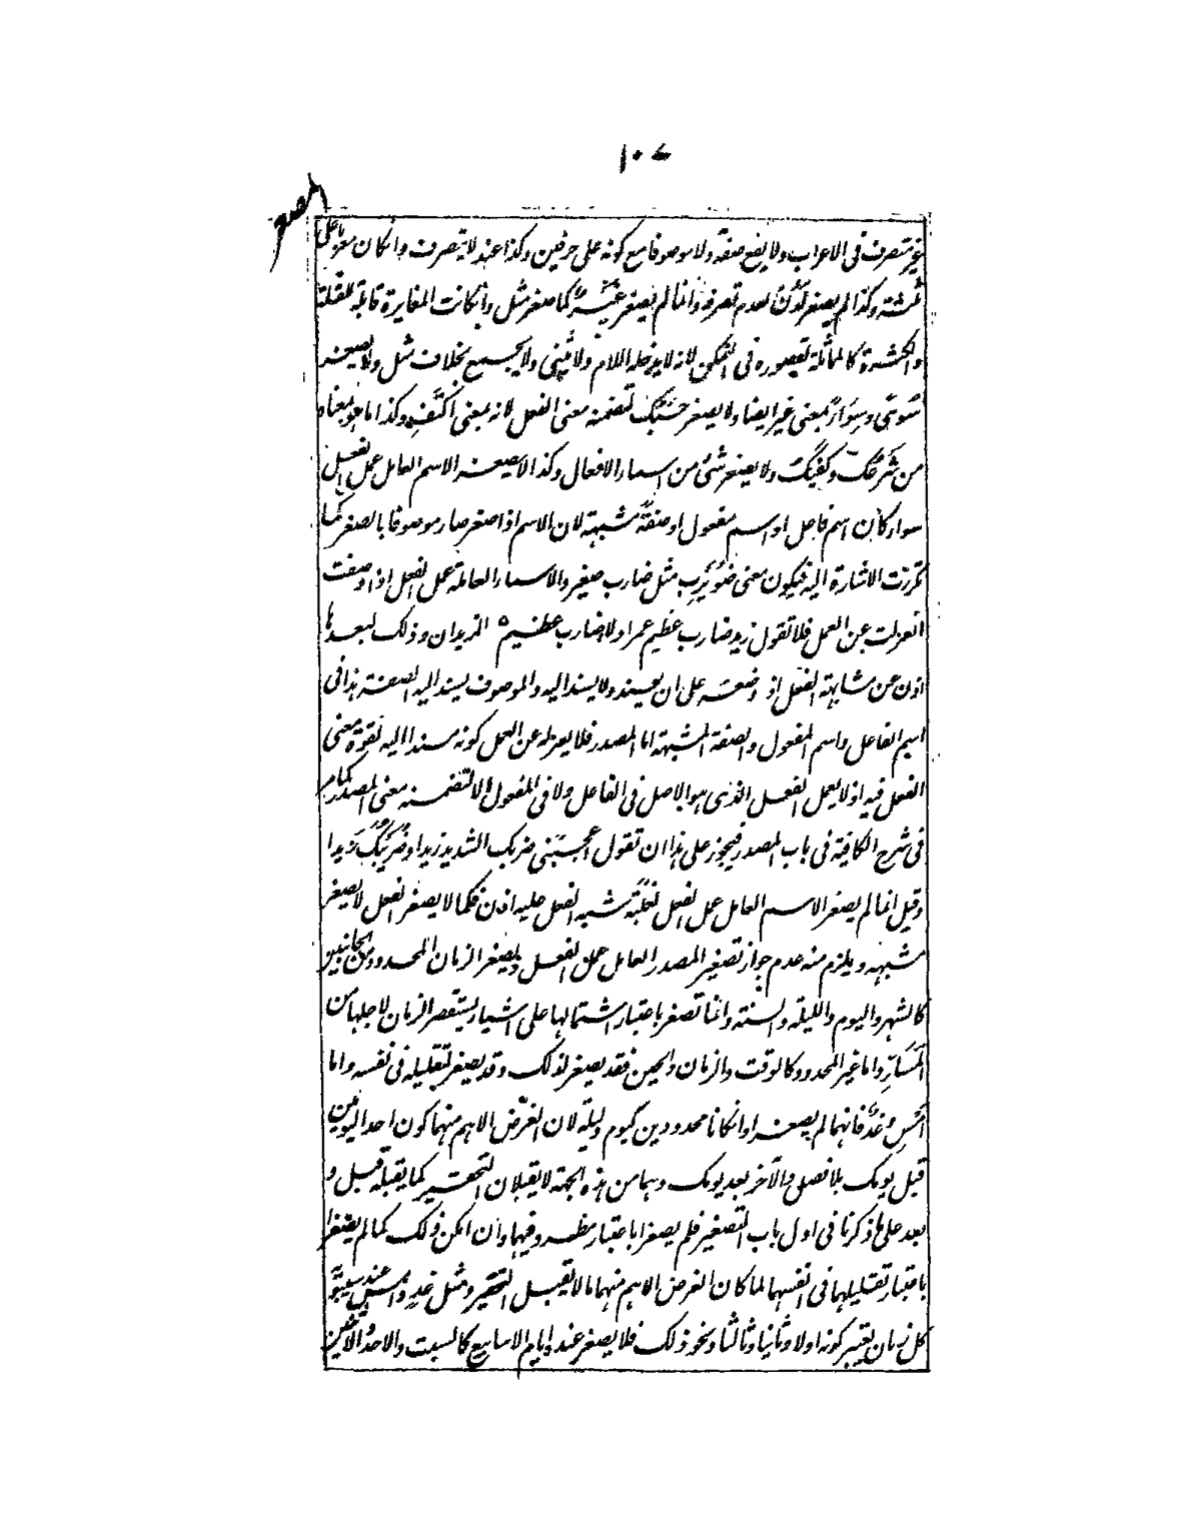 ١٠٧
المصغر
غير متصرف فى الاعراب ولا يقع صفة ولا موصوفا مع كونه على حرفين وكذا عند لا يتصرف وانكان معربا على
ثلثة وكذا لم يصغر لدن لعدم تصرفه وانما لم يصغر غير كما صغر مثل وانكانت المغايرة قابلة للقلة
والكثرة كالمماثلة لقصوره فى التمكن لانه لا يدخله اللام ولا يثنى ولا يجمع بخلاف مثل ولا يصغر
سوى وسواء بمعنى غير ايضا ولا يصغر حسبك لتضمنه معنى الفعل لانه بمعنى اكتف وكذا ما هو بمعناه
من شرعك وكفيك ولا يصغر شئ من اسماء الافعال وكذا لا يصغر الاسم العامل عمل الفعل
سواء كان اسم فاعل او اسم مفعول او صفة مشبهة لان الاسم اذا صغر صار موصوفا بالصغر كما
تكررت الاشارة اليه فيكون معنى ضويرب مثل ضارب صغير والاسماء العاملة عمل الفعل اذا وصفت
انعزلت عن العمل فلا تقول زيد ضارب عظيم عمرا ولا ضارب عظيم الزيدان وذلك لبعدها
اذن عن مشابهة الفعل اذ وضعه على ان يسند ولا يسند اليه والموصوف يسند اليه الصفة هذا فى
اسم الفاعل واسم المفعول والصفة المشبهة اما المصدر فلا يعزله عن العمل كونه مسندا اليه لقوة معنى
الفعل فيه اذ لا يعمل الفعل الذى هو الاصل فى الفاعل ولا فى المفعول الا لتضمنه معنى المصدر كما مر
فى شرح الكافية فى باب المصدر فيجوز على هذا ان تقول اعجبنى ضربك الشديد زيدا وضريبك زيدا
وقيل انما لم يصغر الاسم العامل عمل الفعل لغلبة شبه الفعل عليه اذن فكما لا يصغر الفعل لا يصغر
مشبهه ويلزم منه عدم جواز تصغير المصدر العامل عمل الفعل ويصغر الزمان المحدود من الجانبين
كالشهر واليوم والليلة والسنة وانما تصغر باعتبار اشتمالها على اشياء يستقصر الزمان لاجلها من
المسار واما غير المحدود كالوقت والزمان والحين فقد يصغر لذلك وقد يصغر لتقليله فى نفسه واما
امس وغد فانهما لم يصغرا وانكانا محدودين كيوم وليلة لان الغرض الاهم منهما كون احد اليومين
قبل يومك بلا فصل والآخر بعد يومك وهما من هذه الجهة لا يقبلان التحقير كما يقبله قبل و
بعد على ما ذكرنا فى اول باب التصغير فلم يصغرا باعتبار مظروفيهما وان امكن ذلك كما لم يصغرا
باعتبار تقليلهما فى انفسهما لما كان الغرض الاهم منهما ما لا يقبل التحقير ومثل غد وامس عند سيبويه
كل زمان يعتبر كونه اولا وثانيا وثالثا ونحو ذلك فلا يصغر عنده ايام الاسابيع كالسبت والاحد والاثنين